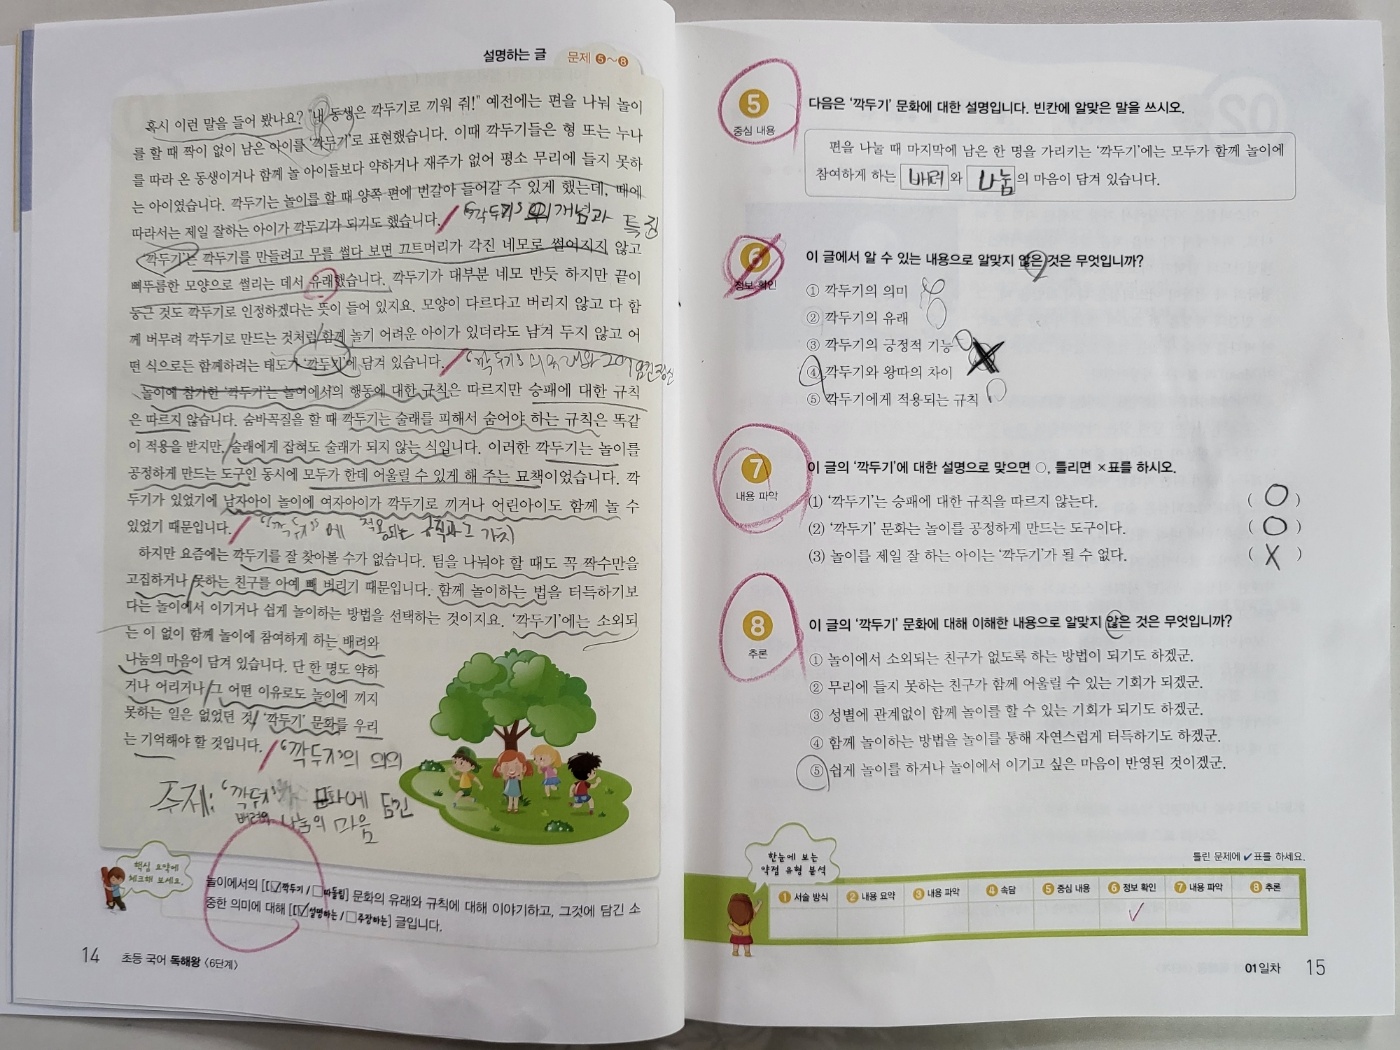 설명하는 글 문제 5~8
혹시 이런 말을 들어 봤나요? "내 동생은 깍두기로 끼워 줘!" 예전에는 편을 나눠 놀이
를 할 때 짝이 없이 남은 아이를 '깍두기'로 표현했습니다. 이때 깍두기들은 형 또는 누나
를 따라 온 동생이거나 함께 놀 아이들보다 약하거나 재주가 없어 평소 무리에 들지 못하
는 아이였습니다. 깍두기는 놀이를 할 때 양쪽 편에 번갈아 들어갈 수 있게 했는데, 때에
따라서는 제일 잘하는 아이가 깍두기가 되기도 했습니다.
'깍두기' 의 개념과 특징
'깍두기'는 깍두기를 만들려고 무를 썰다 보면 끄트머리가 각진 네모로 썰어지지 않고
삐뚜름한 모양으로 썰리는 데서 유래했습니다. 깍두기가 대부분 네모 반듯 하지만 끝이
둥근 것도 깍두기로 인정하겠다는 뜻이 들어 있지요. 모양이 다르다고 버리지 않고 다 함
께 버무려 깍두기로 만드는 것처럼 함께 놀기 어려운 아이가 있더라도 남겨 두지 않고 어
떤 식으로든 함께하려는 태도가 '깍두기'에 담겨 있습니다.
놀이에 참가한 '깍두기'는 놀이에서의 행동에 대한 규칙은 따르지만 승패에 대한 규칙
은 따르지 않습니다. 숨바꼭질을 할 때 깍두기는 술래를 피해서 숨어야 하는 규칙은 똑같
이 적용을 받지만, 술래에게 잡혀도 술래가 되지 않는 식입니다. 이러한 깍두기는 놀이를
공정하게 만드는 도구인 동시에 모두가 한데 어울릴 수 있게 해 주는 묘책이었습니다. 깍
두기가 있었기에 남자아이 놀이에 여자아이가 깍두기로 끼거나 어린아이도 함께 놀 수
있었기 때문입니다.
'깍두기'에 적용되는 규칙과 그 가치
하지만 요즘에는 깍두기를 잘 찾아볼 수가 없습니다. 팀을 나눠야 할 때도 꼭 짝수만을
고집하거나 못하는 친구를 아예 빼 버리기 때문입니다. 함께 놀이하는 법을 터득하기보
다는 놀이에서 이기거나 쉽게 놀이하는 방법을 선택하는 것이지요. '깍두기'에는 소외되
는 이 없이 함께 놀이에 참여하게 하는 배려와
나눔의 마음이 담겨 있습니다. 단 한 명도 약하
거나 어리거나 그 어떤 이유로도 놀이에 끼지
못하는 일은 없었던 것, '깍두기' 문화를 우리
는 기억해야 할 것입니다.
'깍두기'의 의의
주제: '깍두기' 문화에 담긴
배려와 나눔의 마음
핵심 요약에
체크해 보세요.
놀이에서의 [☑깍두기 / □따돌림] 문화의 유래와 규칙에 대해 이야기하고, 그것에 담긴 소
중한 의미에 대해 [☑설명하는 / □주장하는] 글입니다.
14 초등 국어 독해왕 〈6단계〉
5 다음은 '깍두기' 문화에 대한 설명입니다. 빈칸에 알맞은 말을 쓰시오.
중심 내용
편을 나눌 때 마지막에 남은 한 명을 가리키는 '깍두기'에는 모두가 함께 놀이에
참여하게 하는 배려 와 나눔 의 마음이 담겨 있습니다.
6 이 글에서 알 수 있는 내용으로 알맞지 않은 것은 무엇입니까?
정보 확인
① 깍두기의 의미
② 깍두기의 유래
③ 깍두기의 긍정적 기능
④ 깍두기와 왕따의 차이
⑤ 깍두기에게 적용되는 규칙
7 이 글의 '깍두기'에 대한 설명으로 맞으면 ○, 틀리면 ×표를 하시오.
내용 파악
(1) '깍두기'는 승패에 대한 규칙을 따르지 않는다. ( O )
(2) '깍두기' 문화는 놀이를 공정하게 만드는 도구이다. ( O )
(3) 놀이를 제일 잘 하는 아이는 '깍두기'가 될 수 없다. ( X )
8 이 글의 '깍두기' 문화에 대해 이해한 내용으로 알맞지 않은 것은 무엇입니까?
추론
① 놀이에서 소외되는 친구가 없도록 하는 방법이 되기도 하겠군.
② 무리에 들지 못하는 친구가 함께 어울릴 수 있는 기회가 되겠군.
③ 성별에 관계없이 함께 놀이를 할 수 있는 기회가 되기도 하겠군.
④ 함께 놀이하는 방법을 놀이를 통해 자연스럽게 터득하기도 하겠군.
⑤ 쉽게 놀이를 하거나 놀이에서 이기고 싶은 마음이 반영된 것이겠군.
한눈에 보는
약점 유형 분석
틀린 문제에 ✓표를 하세요.
1 서술 방식 2 내용 요약 3 내용 파악 4 속담 5 중심 내용 6 정보 확인 7 내용 파악 8 추론
✓
01일차 15